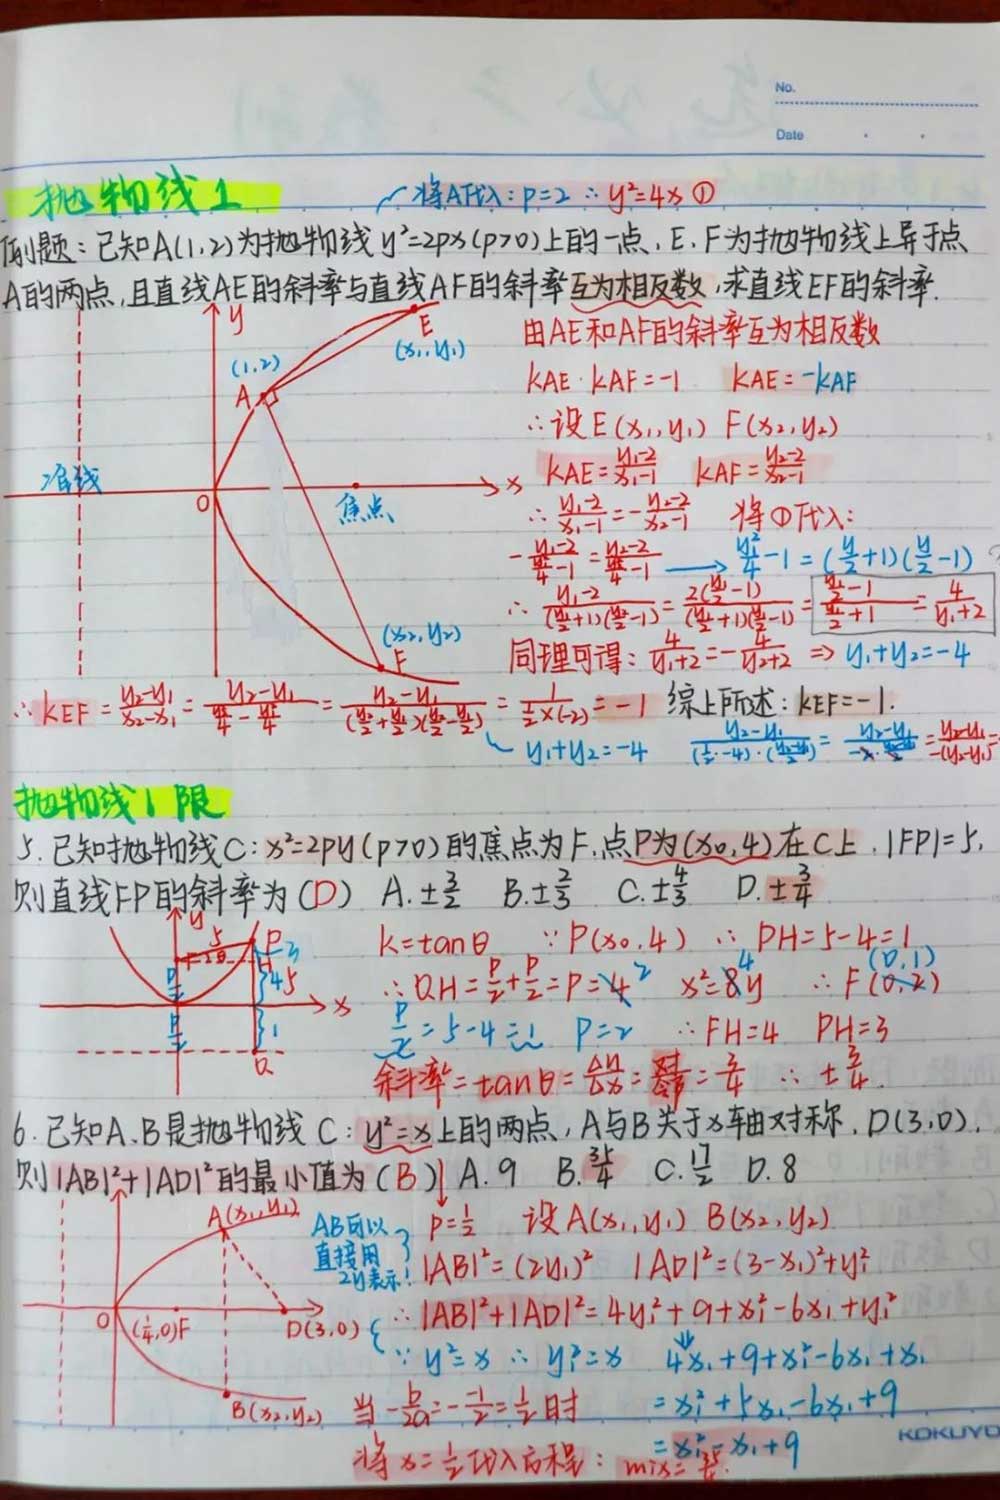 No.
Date
抛物线1
将A代入:p=2 ∴y²=4x ①
例题:已知A(1,2)为抛物线y²=2px(p>0)上的一点,E、F为抛物线上异于点
A的两点,且直线AE的斜率与直线AF的斜率互为相反数,求直线EF的斜率.
y
E
(x₁,y₁)
(1,2)
A
准线
O
焦点
x
(x₂,y₂)
F
由AE和AF的斜率互为相反数
kAE·kAF=-1 kAE=-kAF
∴设E(x₁,y₁) F(x₂,y₂)
kAE=(y₁-2)/(x₁-1) kAF=(y₂-2)/(x₂-1)
∴(y₁-2)/(x₁-1)=-(y₂-2)/(x₂-1) 将①代入:
→ y₁²/4-1=(y/2+1)(y/2-1)
∴(y₁-2)/((y₁/2+1)(y₁/2-1))=2(y₁/2-1)/((y₁/2+1)(y₁/2-1))=(y₁/2-1)/(y₁/2+1)=4/(y₁+2)
同理可得:4/(y₁+2)=-4/(y₂+2) ⇒ y₁+y₂=-4
∴kEF=(y₂-y₁)/(x₂-x₁)=(y₂-y₁)/(y₂²/4-y₁²/4)=(y₂-y₁)/((y₂/2+y₁/2)(y₂/2-y₁/2))=1/(½×(-2))=-1 综上所述:kEF=-1.
y₁+y₂=-4
抛物线1限
5.已知抛物线C:x²=2py(p>0)的焦点为F,点P为(x₀,4)在C上,|FP|=5,
则直线FP的斜率为(D) A.±3/2 B.±2/3 C.±4/3 D.±3/4
y
5
P
F
θ
H
3
4
5
1
p/2
p/2
x
Q
k=tanθ ∵P(x₀,4) ∴PH=5-4=1
∴QH=p/2+p/2=p=4 2 x²=8y 4 ∴F(0,2) (0,1)
p/2=5-4=1 p=2 ∴FH=4 PH=3
斜率=tanθ=Δy/Δx= =3/4 ∴±3/4.
6.已知A、B是抛物线C:y²=x上的两点,A与B关于x轴对称,D(3,0),
则|AB|²+|AD|²的最小值为(B) A.9 B.35/4 C.17/2 D.8
A(x₁,y₁)
O
(¼,0)F
D(3,0)
B(x₂,y₂)
AB可以
直接用
2y表示!
p=½ 设A(x₁,y₁) B(x₂,y₂)
|AB|²=(2y₁)² |AD|²=(3-x₁)²+y₁²
∴|AB|²+|AD|²=4y₁²+9+x₁²-6x₁+y₁²
∵y²=x ∴y₁²=x 4x₁+9+x₁²-6x₁+x₁
当-b/2a=-(-1)/2=½时 =x₁²+5x₁-6x₁+9
=x₁²-x₁+9
将x=½代入方程: mix=35/4.
KOKUYO